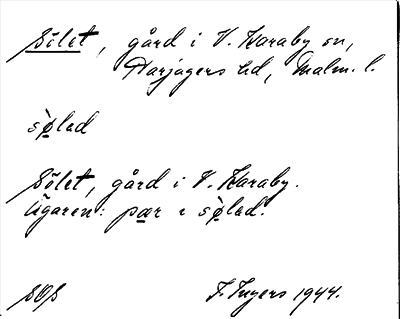 Sölet, gård i V. Karaby sn,
Harjagers hd, Malm. l.
sø̀led
Sölet, gård i V. Karaby.
Ägaren: pær i sø̀led.
SOS
F. Ingers 1944.